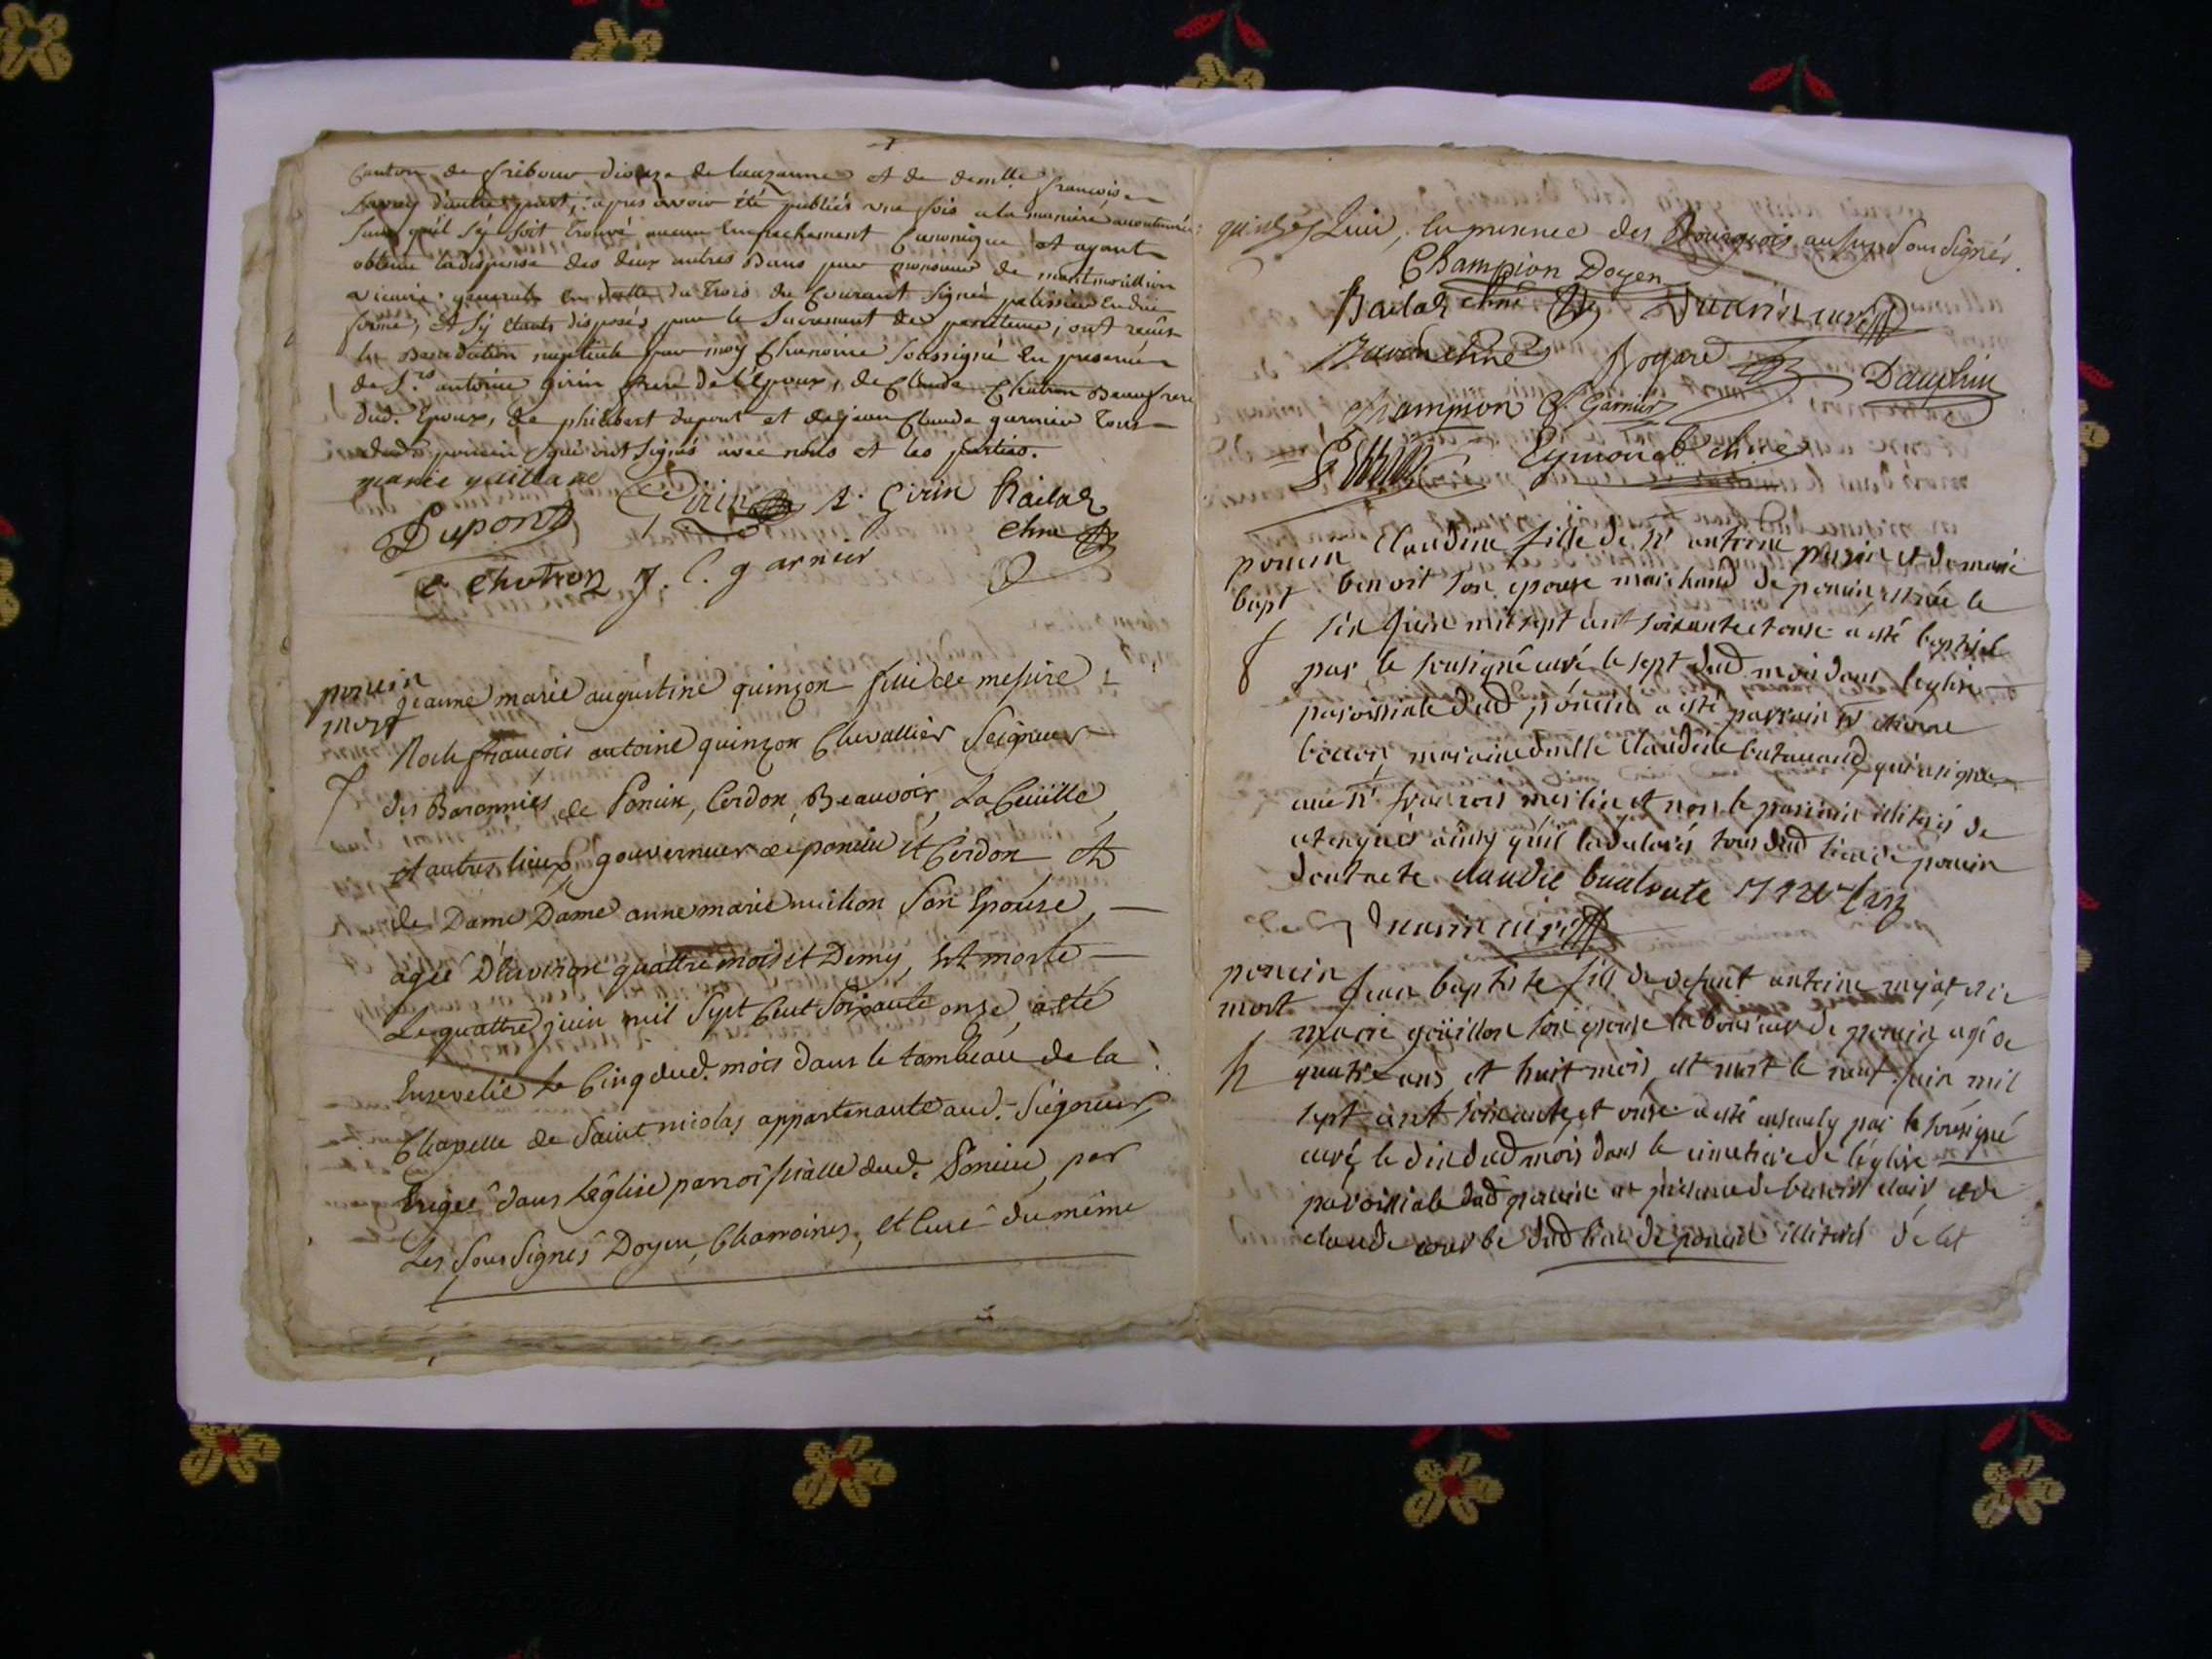 Canton de fribour diocèze de lauzanne et de demlle francoise
savoy d'autre part, apres avoir été publiés une fois a la maniere accoutumée
sans qu'il s'y soit trouvé aucun Empechement Canonique et ayant
obtenu la dispense des deux autres Bans par monsieur de montmorillion
vicaire general en datte du trois du Courant signé en due
forme, et s'y etants disposés par le sacrement de penitence, ont reçus
la Benediction nuptiale par moy Chanoine soussigné En presence
de S.rs antoine girin frere de l'Epoux, de Claude Chatron Beaufrere
dud. Epoux, de philibert dupont et de jean Claude garnier Tous
dud. poncin qui ont signés avec nous et les parties.
marie gaillard
Dupont Girin A. Girin Railard
chne
C chatron J. C. garnier
poncin
mort
jeanne marie augustine quinson fille de messire
Roch françois antoine quinson Chevallier Seigneur
7
des Baronnies de Poncin, Cerdon, Beauvoir, La Cueille
et autres lieux, gouverneur de poncin et Cerdon, et
de Dame Dame anne marie millon Son Epouse,
agée D'environ quattre mois et Demy, Est morte
Le quattre juin mil Sept Cent Soixante onze, a eté
Ensevelie le Cinq dud. mois dans le tombeau de la
Chapelle de Saint nicolas appartenante aud. Seigneur,
Erigée dans L'église parroissialle dud. Poncin, par
Les Sous Signés Doyen, Chanoines, et Curé du même
Lieu, En presence des Bourgeois aussy Sous Signés.
Champion Doyen
Railard chne curé
chne Royare Dauphin
Champion C. Garnier
Eymonet chne
poncin
bapt
8
Claudine fille de Sr antoine et de marie
benoit son epouse marchand de poncin, née le
six juin mil sept cent soixante et onze a esté baptisée
par le sousigné curé le sept dud mois dans leglise
paroissiale dud poncin a esté parrain Sr etienne
marraine demlle Claudine qui a signé
avec Sr francois et non le parrain illiteré de
ce enquis ainsy qu'il la declaré tous dud lieu de poncin
dont acte claudie
curé
poncin
mort
h
jean baptiste fils de defunt antoine et de
marie goüillon son epouse laboureur de poncin agé de
quatre ans et huit mois est mort le neuf juin mil
sept cent soixante et onze a esté ensevely par le sousigné
curé le dix dud mois dans le cimetiere de l'eglise
paroissiale dud poncin en presence de benoit et de
claude dud lieu de poncin illiterés de cet